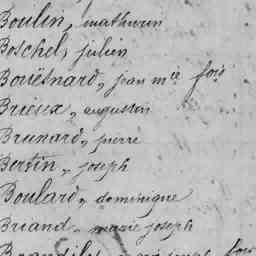 Boulin, mathurin
Boschel, julien
Bouësnard, jean mie fois
Brieux, augustin
Brunard, pierre
Bertin, joseph
Boulard, dominique
Briand, marie joseph
fois